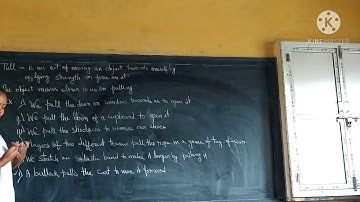 Pull - is an act of moving an object towards oneself by
applying strength or force on it
The object moves closer to us on pulling
i) We pull the door or window towards us to open it
ii) We pull the door of a cupboard to open it.
iii) We pull the shoelaces to remove our shoes
Players of two different teams pull the rope in a game of tug-of-war.
We stretch an elastic band to make it longer by pulling it.
A bullock pulls the cart to move it forward.
Made with
KINEMASTER